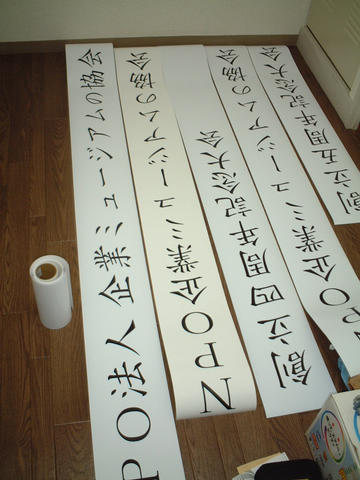 PO法人 企業ミュージアムの協会
NPO企業ミュージアムの協会
創立四周年記念大会
PO企業ミュージアムの協会
創立五周年記念大会